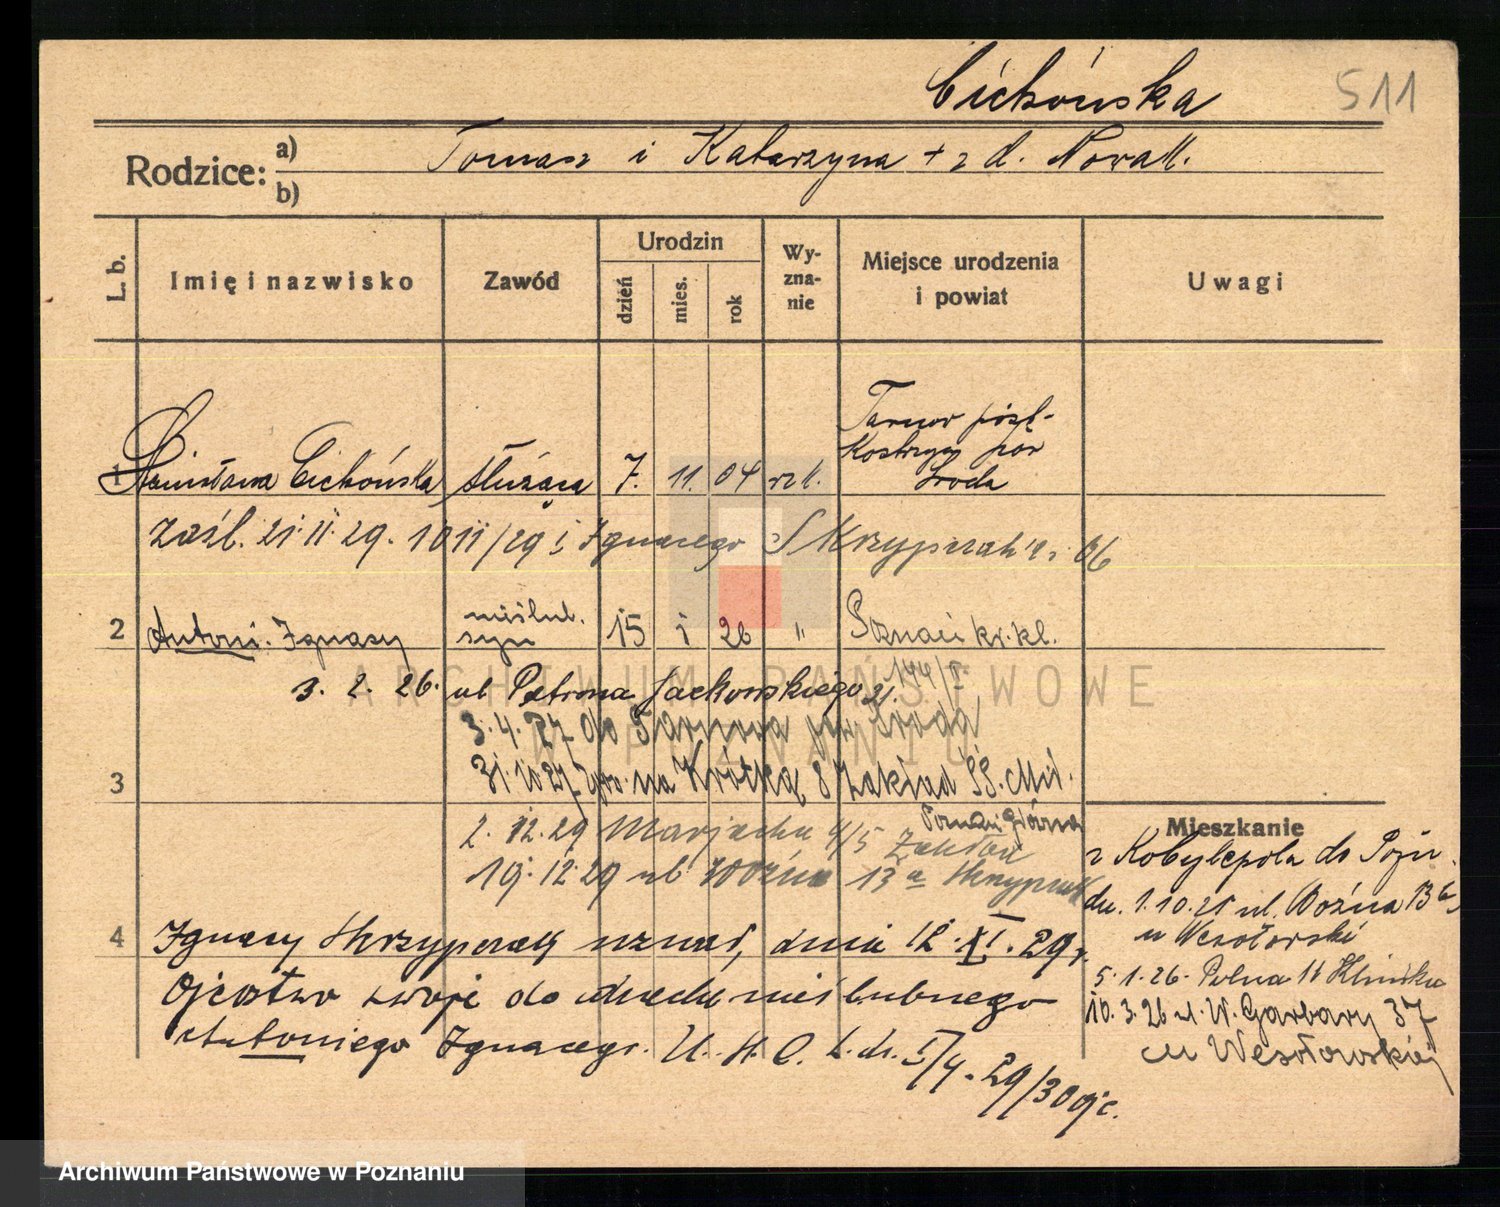 Cichońska 511
Rodzice: a) Tomasz i Katarzyna + z d. Nowak.
b)
L. b. Imię i nazwisko Zawód Urodzin dzień mies. rok Wyznanie Miejsce urodzenia i powiat Uwagi
Tarnowo
Kostrzyn pow
1 Stanisława Cichońska służąca 7. 11. 04 rzk. Środa
zaśl. 21. II. 29. Ignacego Skrzypczak
2 Antoni Ignacy nieślub. syn 15 I 26 " Poznań kr. kl.
144/I.
3. 2. 26. ul Patrona Jackowskiego 21.
3. 4. 27 do Tarnowa pow Środa
3 31. 10. 27 na Krótką 8 Zakład SS. Mił.
Poznań Główna
2. 12. 29 4/5 Zakład
19. 12. 29 ul Woźna 13a Skrzypczak
Mieszkanie
z Kobylepola do Pozn.
dn. 1. 10. 25 ul. Woźna 13b
u Wesołowski
5. 1. 26. Polna
10. 3. 26 ul. W. Garbary 37
u Wesołowskiej
4 Ignacy Skrzypczak uznał, dnia 12. XI. 29 r.
ojcostwo swoje do dziecka nieślubnego
Antoniego Ignacego. U. S. C. L. dz. 29/30
ARCHIWUM PAŃSTWOWE
W POZNANIU
Archiwum Państwowe w Poznaniu